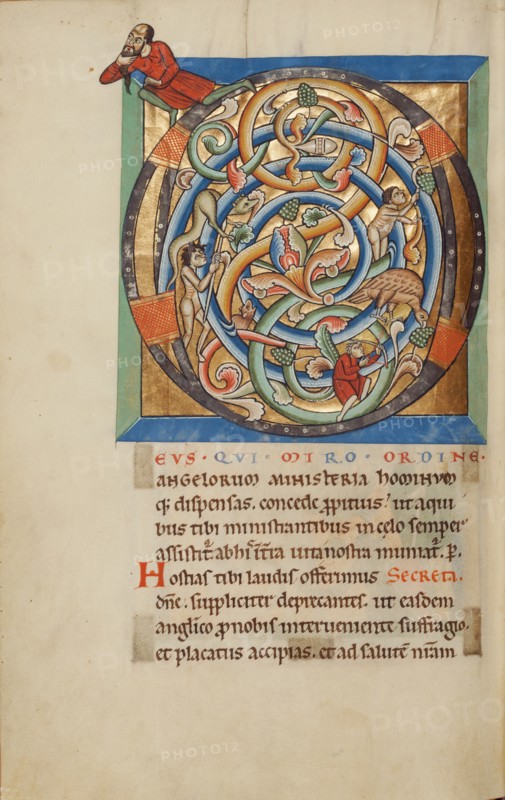 D
EVS · QVI · MIRO · ORDINE ·
ANGELORUM MINISTERIA HOMINUM
q; dispensas. concede ꝓpitius? ut aqui
bus tibi ministrantibus incelo semper
assistit᷑ abhi̅ı̅t̅ra uitanostra muniat᷑. P.
Hostias tibi laudis offerimus Secreta.
dn̅e. suppliciter deprecantes. ut easdem
anglico ꝓnobis interueniente suffragio.
et placatus accipias. et ad salute̅ nr̅am
PHOTO12